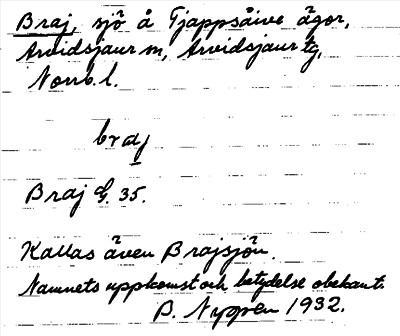 Braj, sjö å Tjappsåive ägor,
Arvidsjaur sn, Arvidsjaur tg,
Norrb. l.
braj
Braj G. 35.
Kallas även Brajsjön.
Namnets uppkomst och betydelse obekant.
B. Nygren 1932.